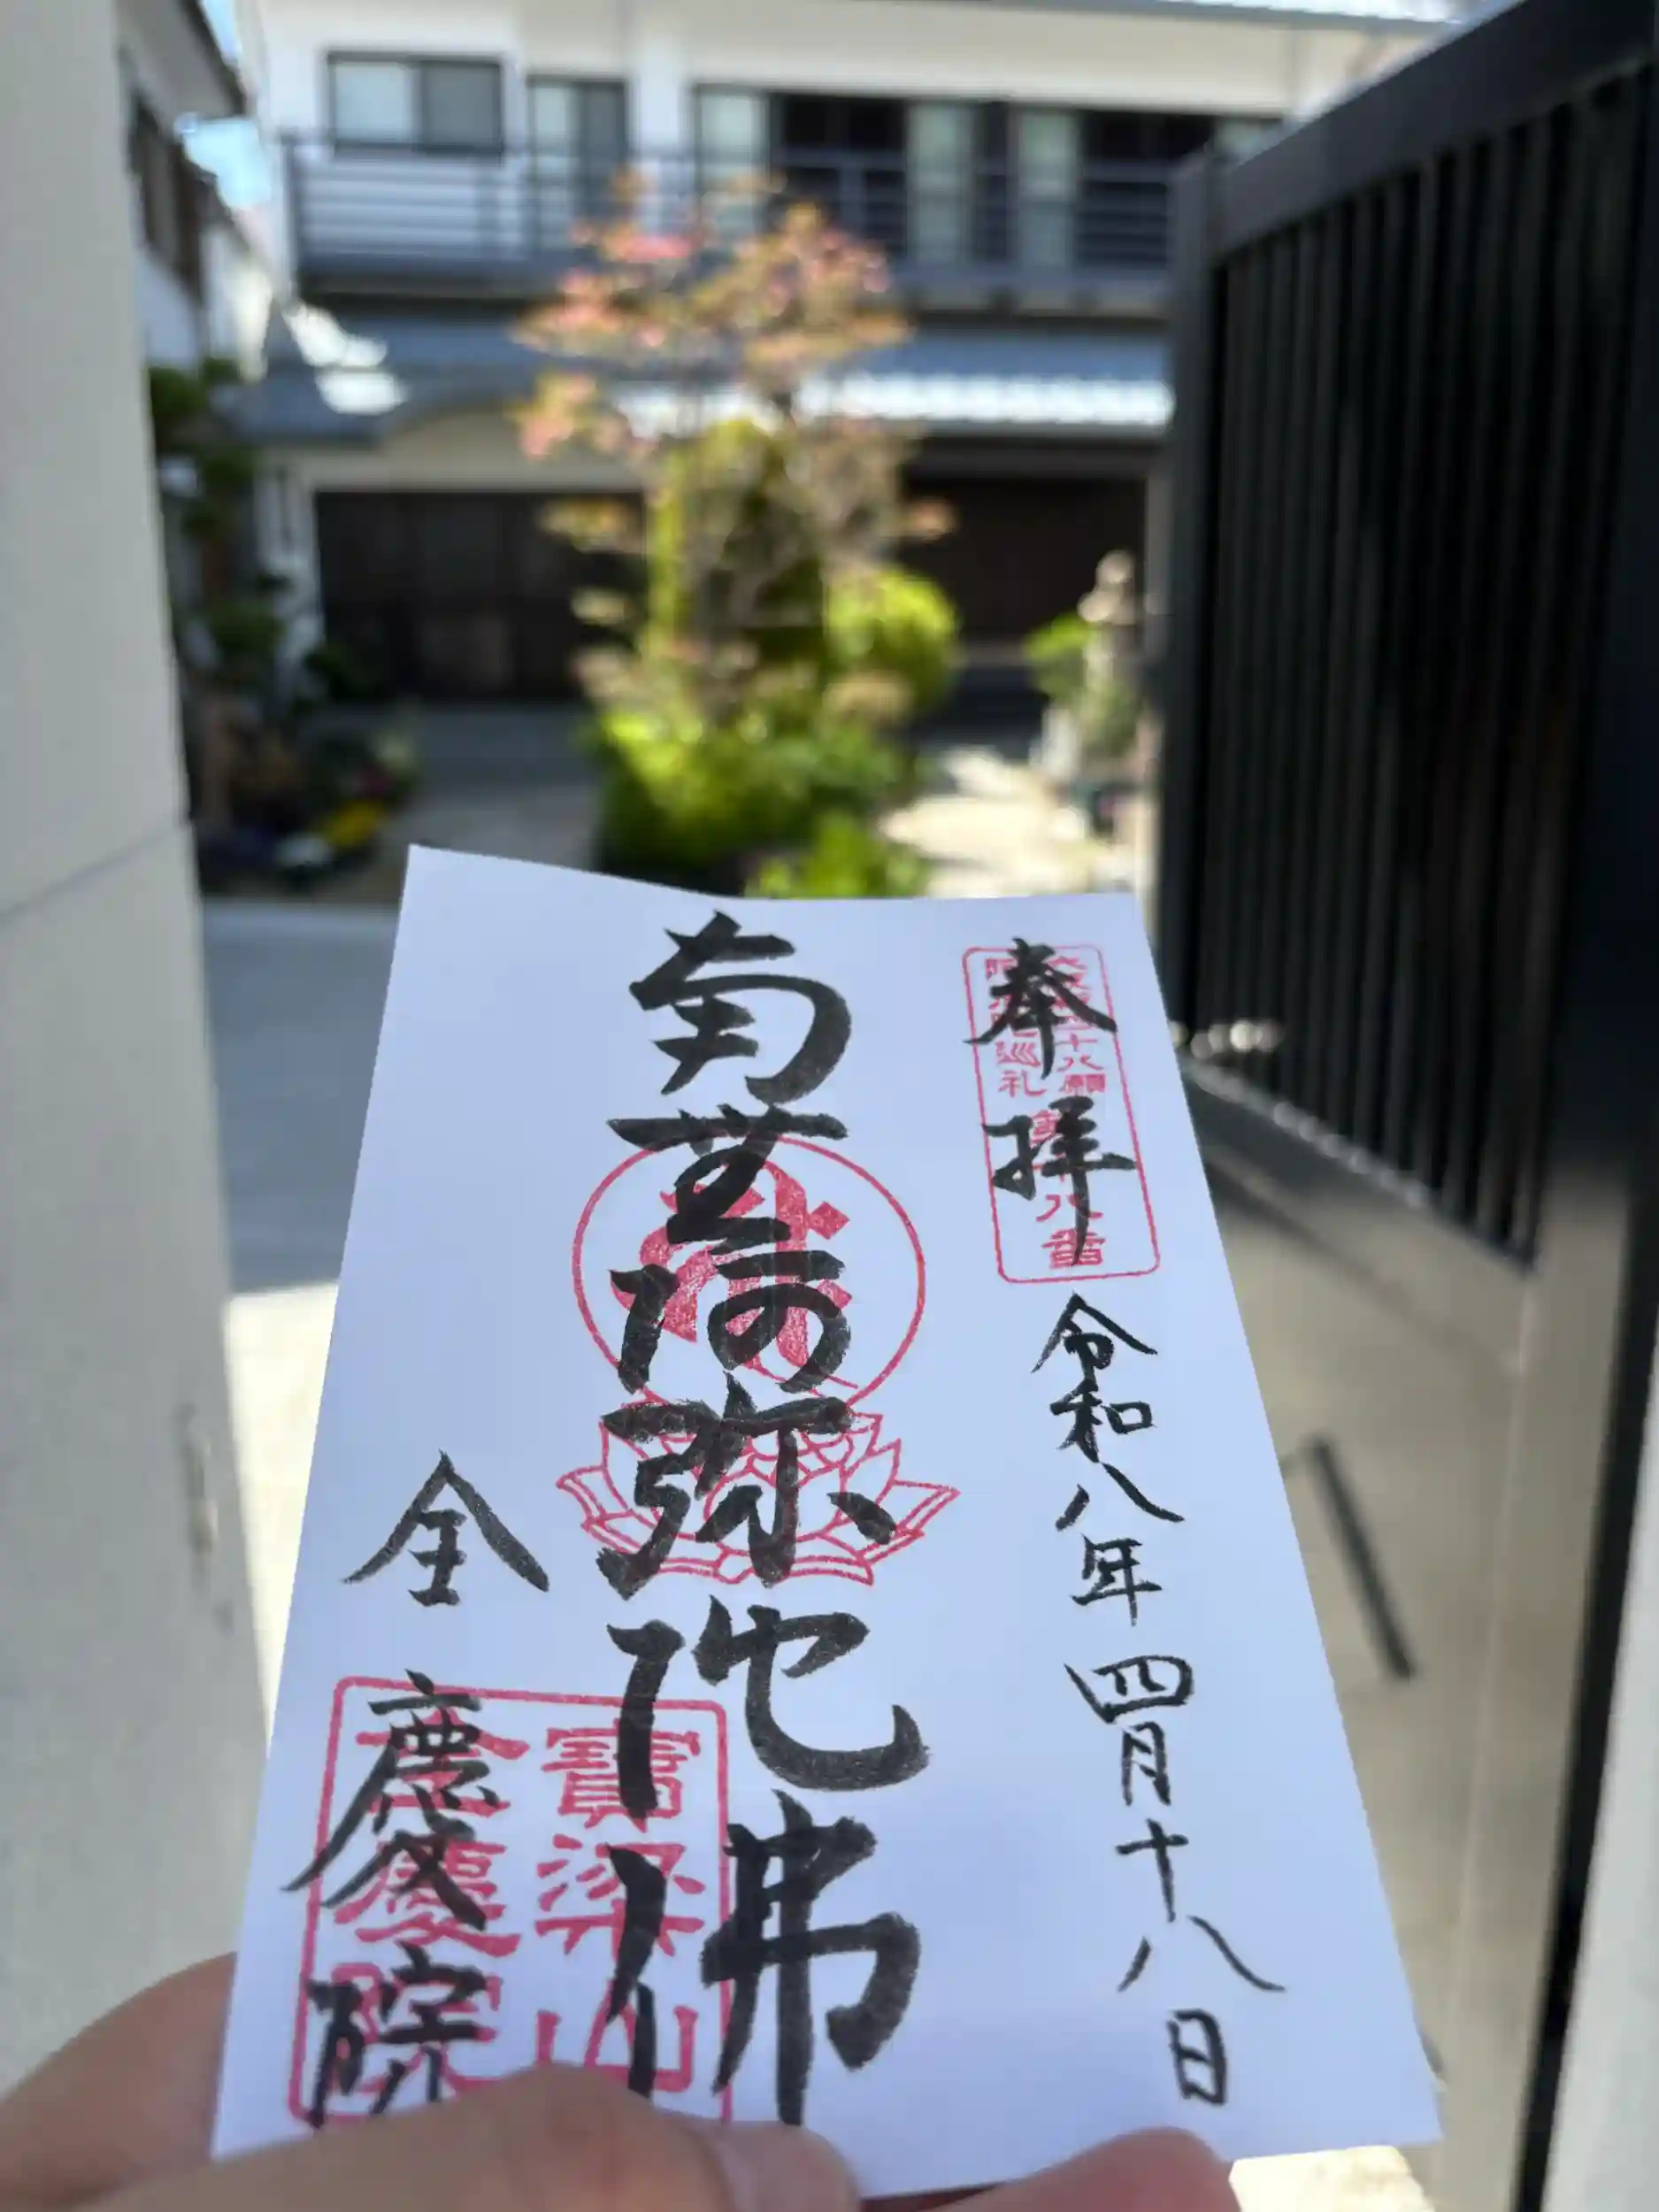 奉拝
十八願
巡礼
八番
令和八年四月十八日
南無阿弥陀佛
寶梁山
全慶院
全慶院